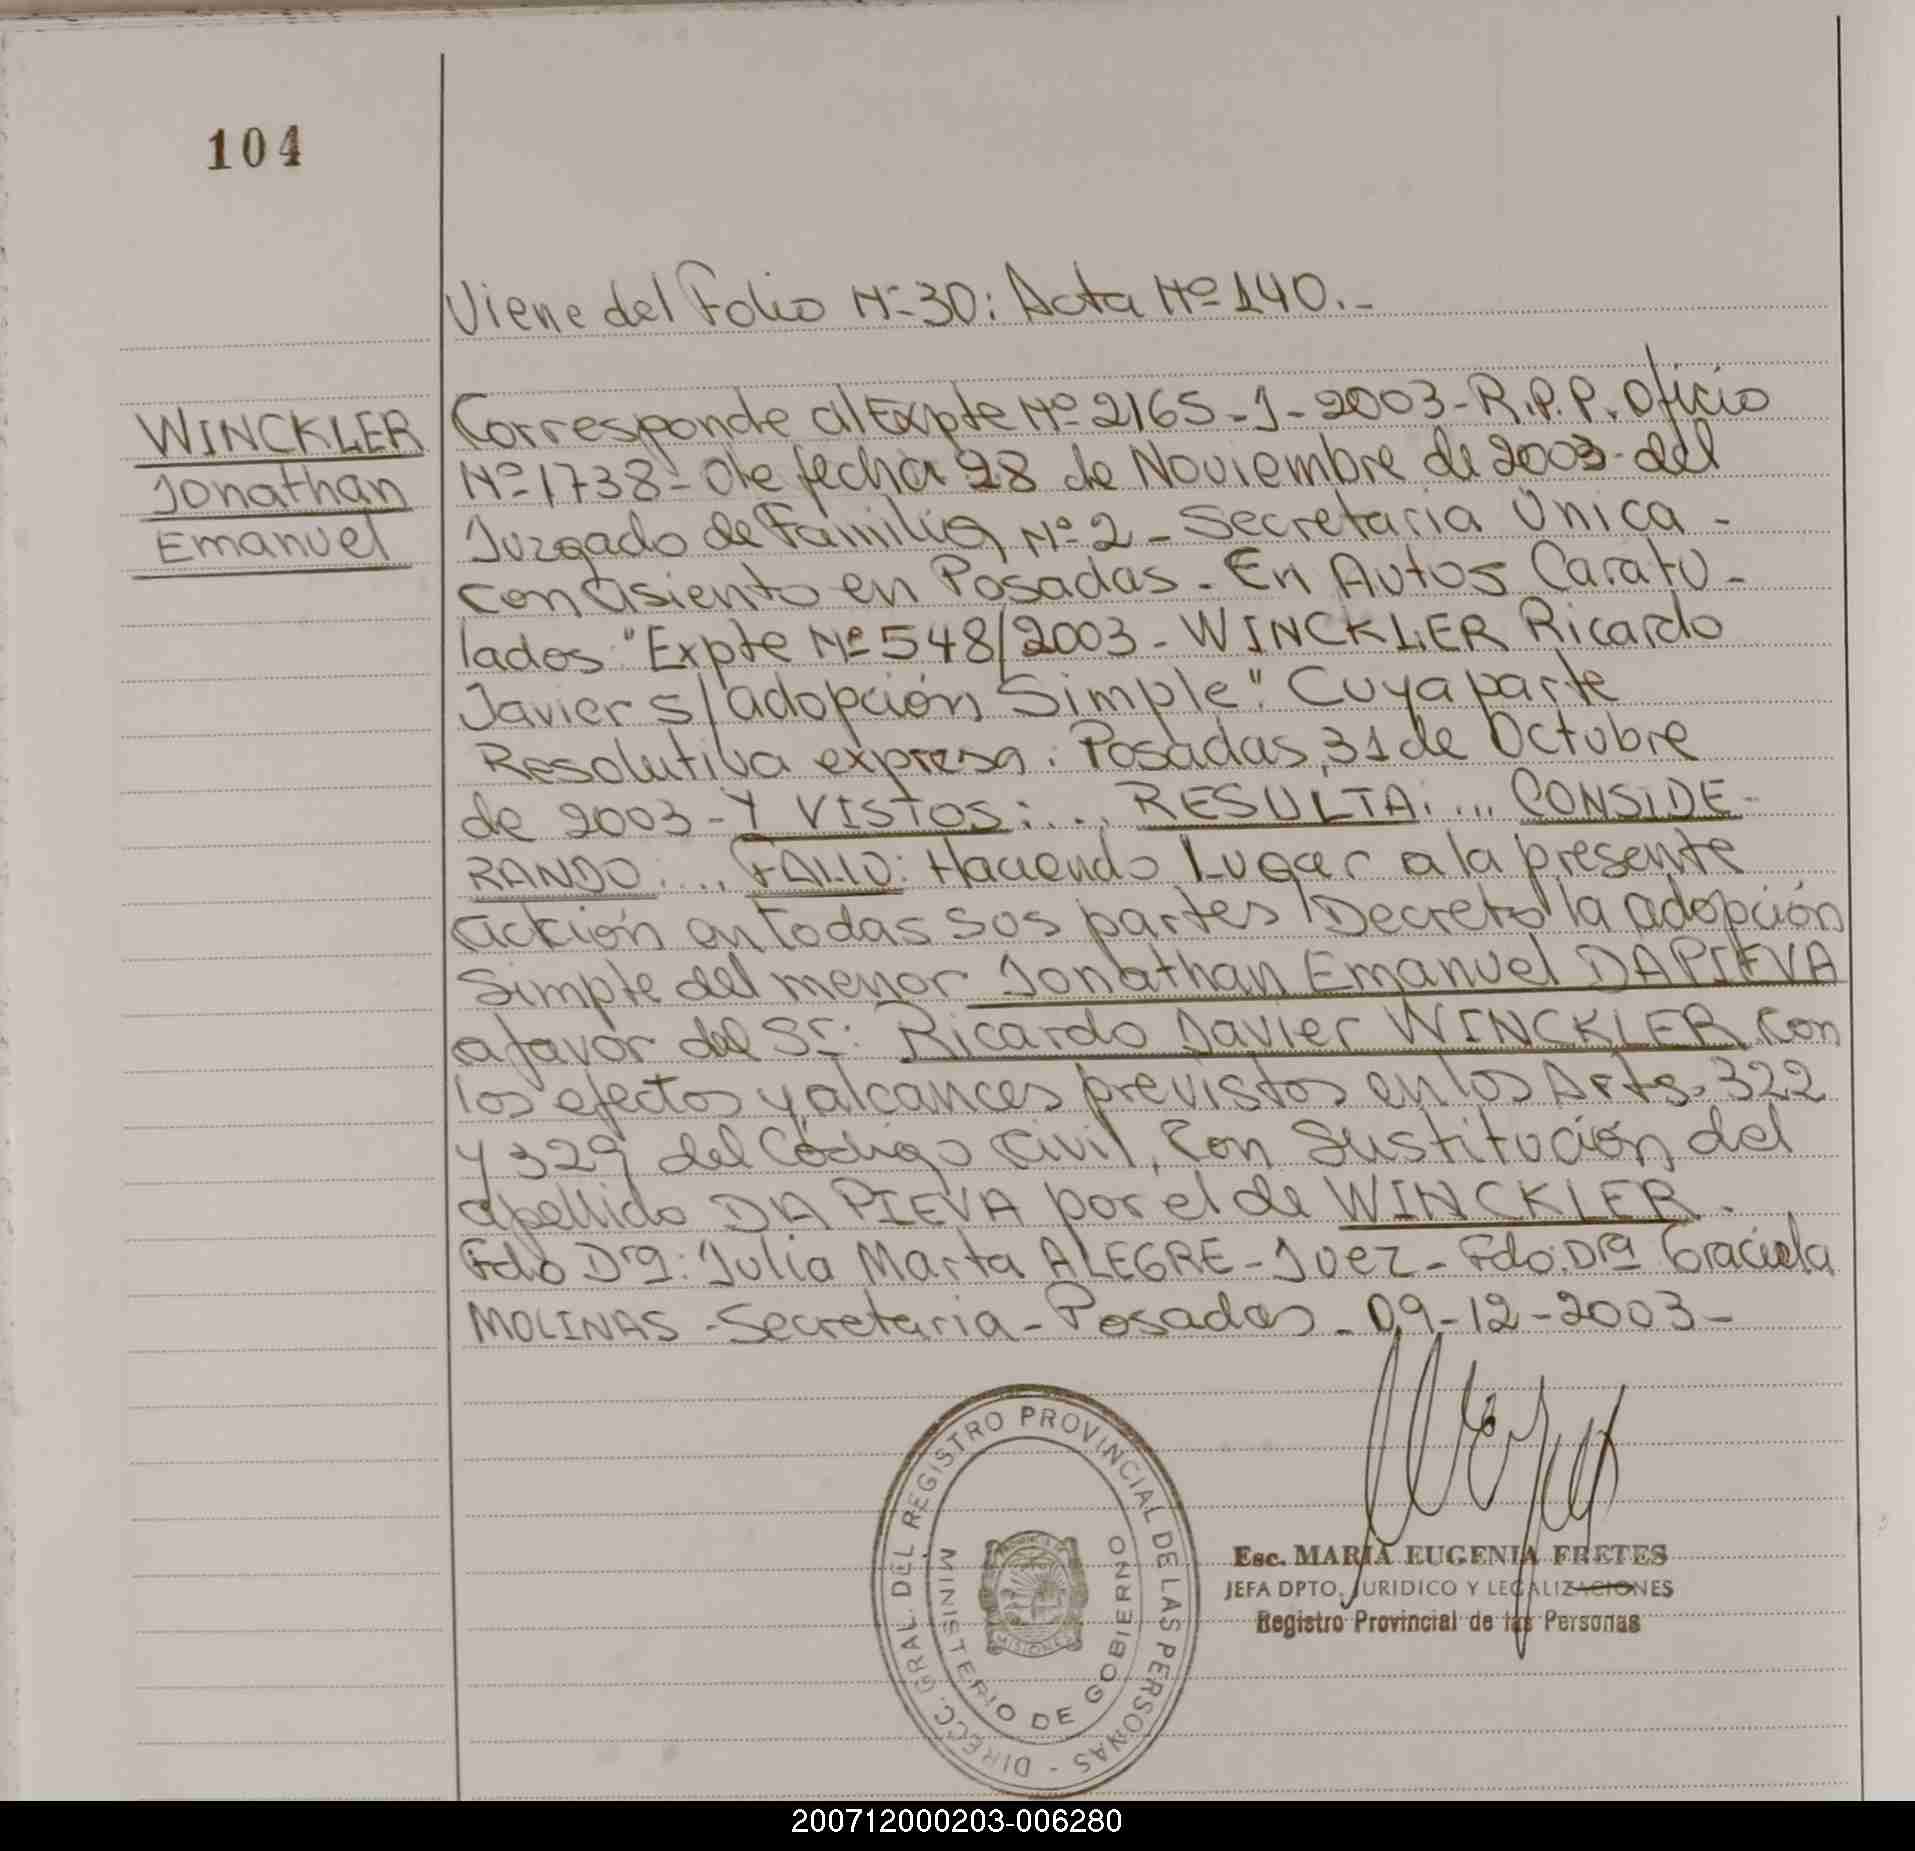 104
Viene del Folio Nº 30: Acta Nº 140.-
WINCKLER
Jonathan
Emanuel
Corresponde al Expte Nº 2165-J-2003-R.P.P. Oficio
Nº 1738- de fecha 28 de Noviembre de 2003- del
Juzgado de Familia Nº 2 - Secretaria Única -
con asiento en Posadas - En Autos Caratu-
lados "Expte Nº 548/2003 - WINCKLER Ricardo
Javier s/adopción Simple". Cuya parte
Resolutiva expresa: Posadas, 31 de Octubre
de 2003 - Y VISTOS:... RESULTA:... CONSIDE-
RANDO:... FALLO: Haciendo Lugar a la presente
acción en todas sus partes Decreto la adopción
Simple del menor Jonathan Emanuel DAPIEVA
a favor del Sr. Ricardo Javier WINCKLER con
los efectos y alcances previstos en los Arts. 322
y 329 del Código Civil, Con Sustitución del
apellido DA PIEVA por el de WINCKLER.
Fdo Dra: Julia Marta ALEGRE - Juez - Fdo. Dra Graciela
MOLINAS - Secretaria - Posadas - 09-12-2003 -
DIRECC. GRAL. DEL REGISTRO PROVINCIAL DE LAS PERSONAS -
MINISTERIO DE GOBIERNO
MISIONES
Esc. MARIA EUGENIA FRETES
JEFA DPTO. JURIDICO Y LEGALIZACIONES
Registro Provincial de las Personas
200712000203-006280